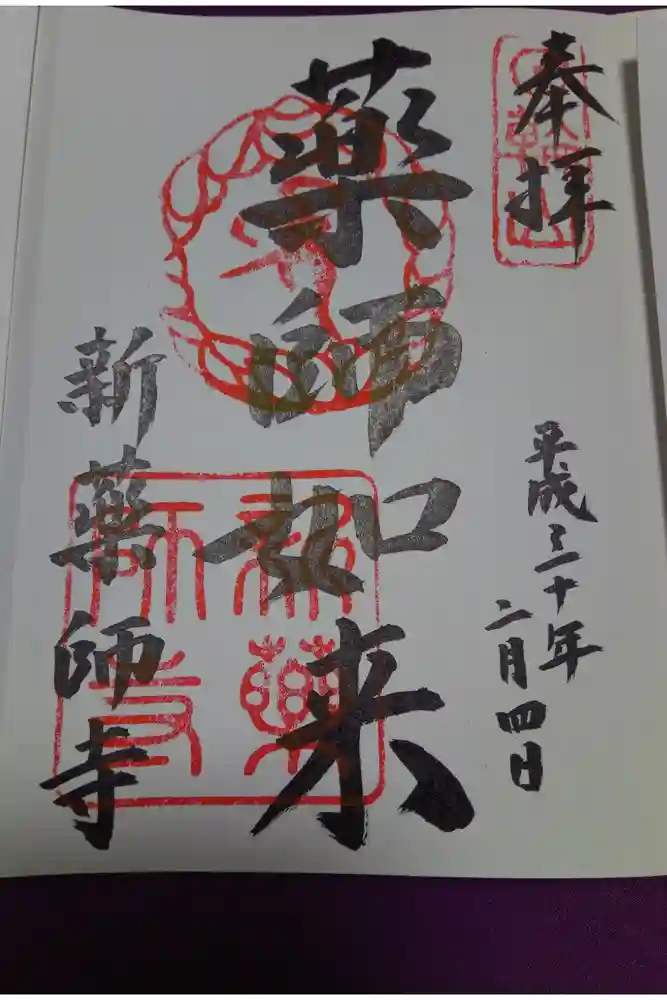 奉拝
平成三十年
二月四日
薬師如来
新薬師寺
新薬師寺